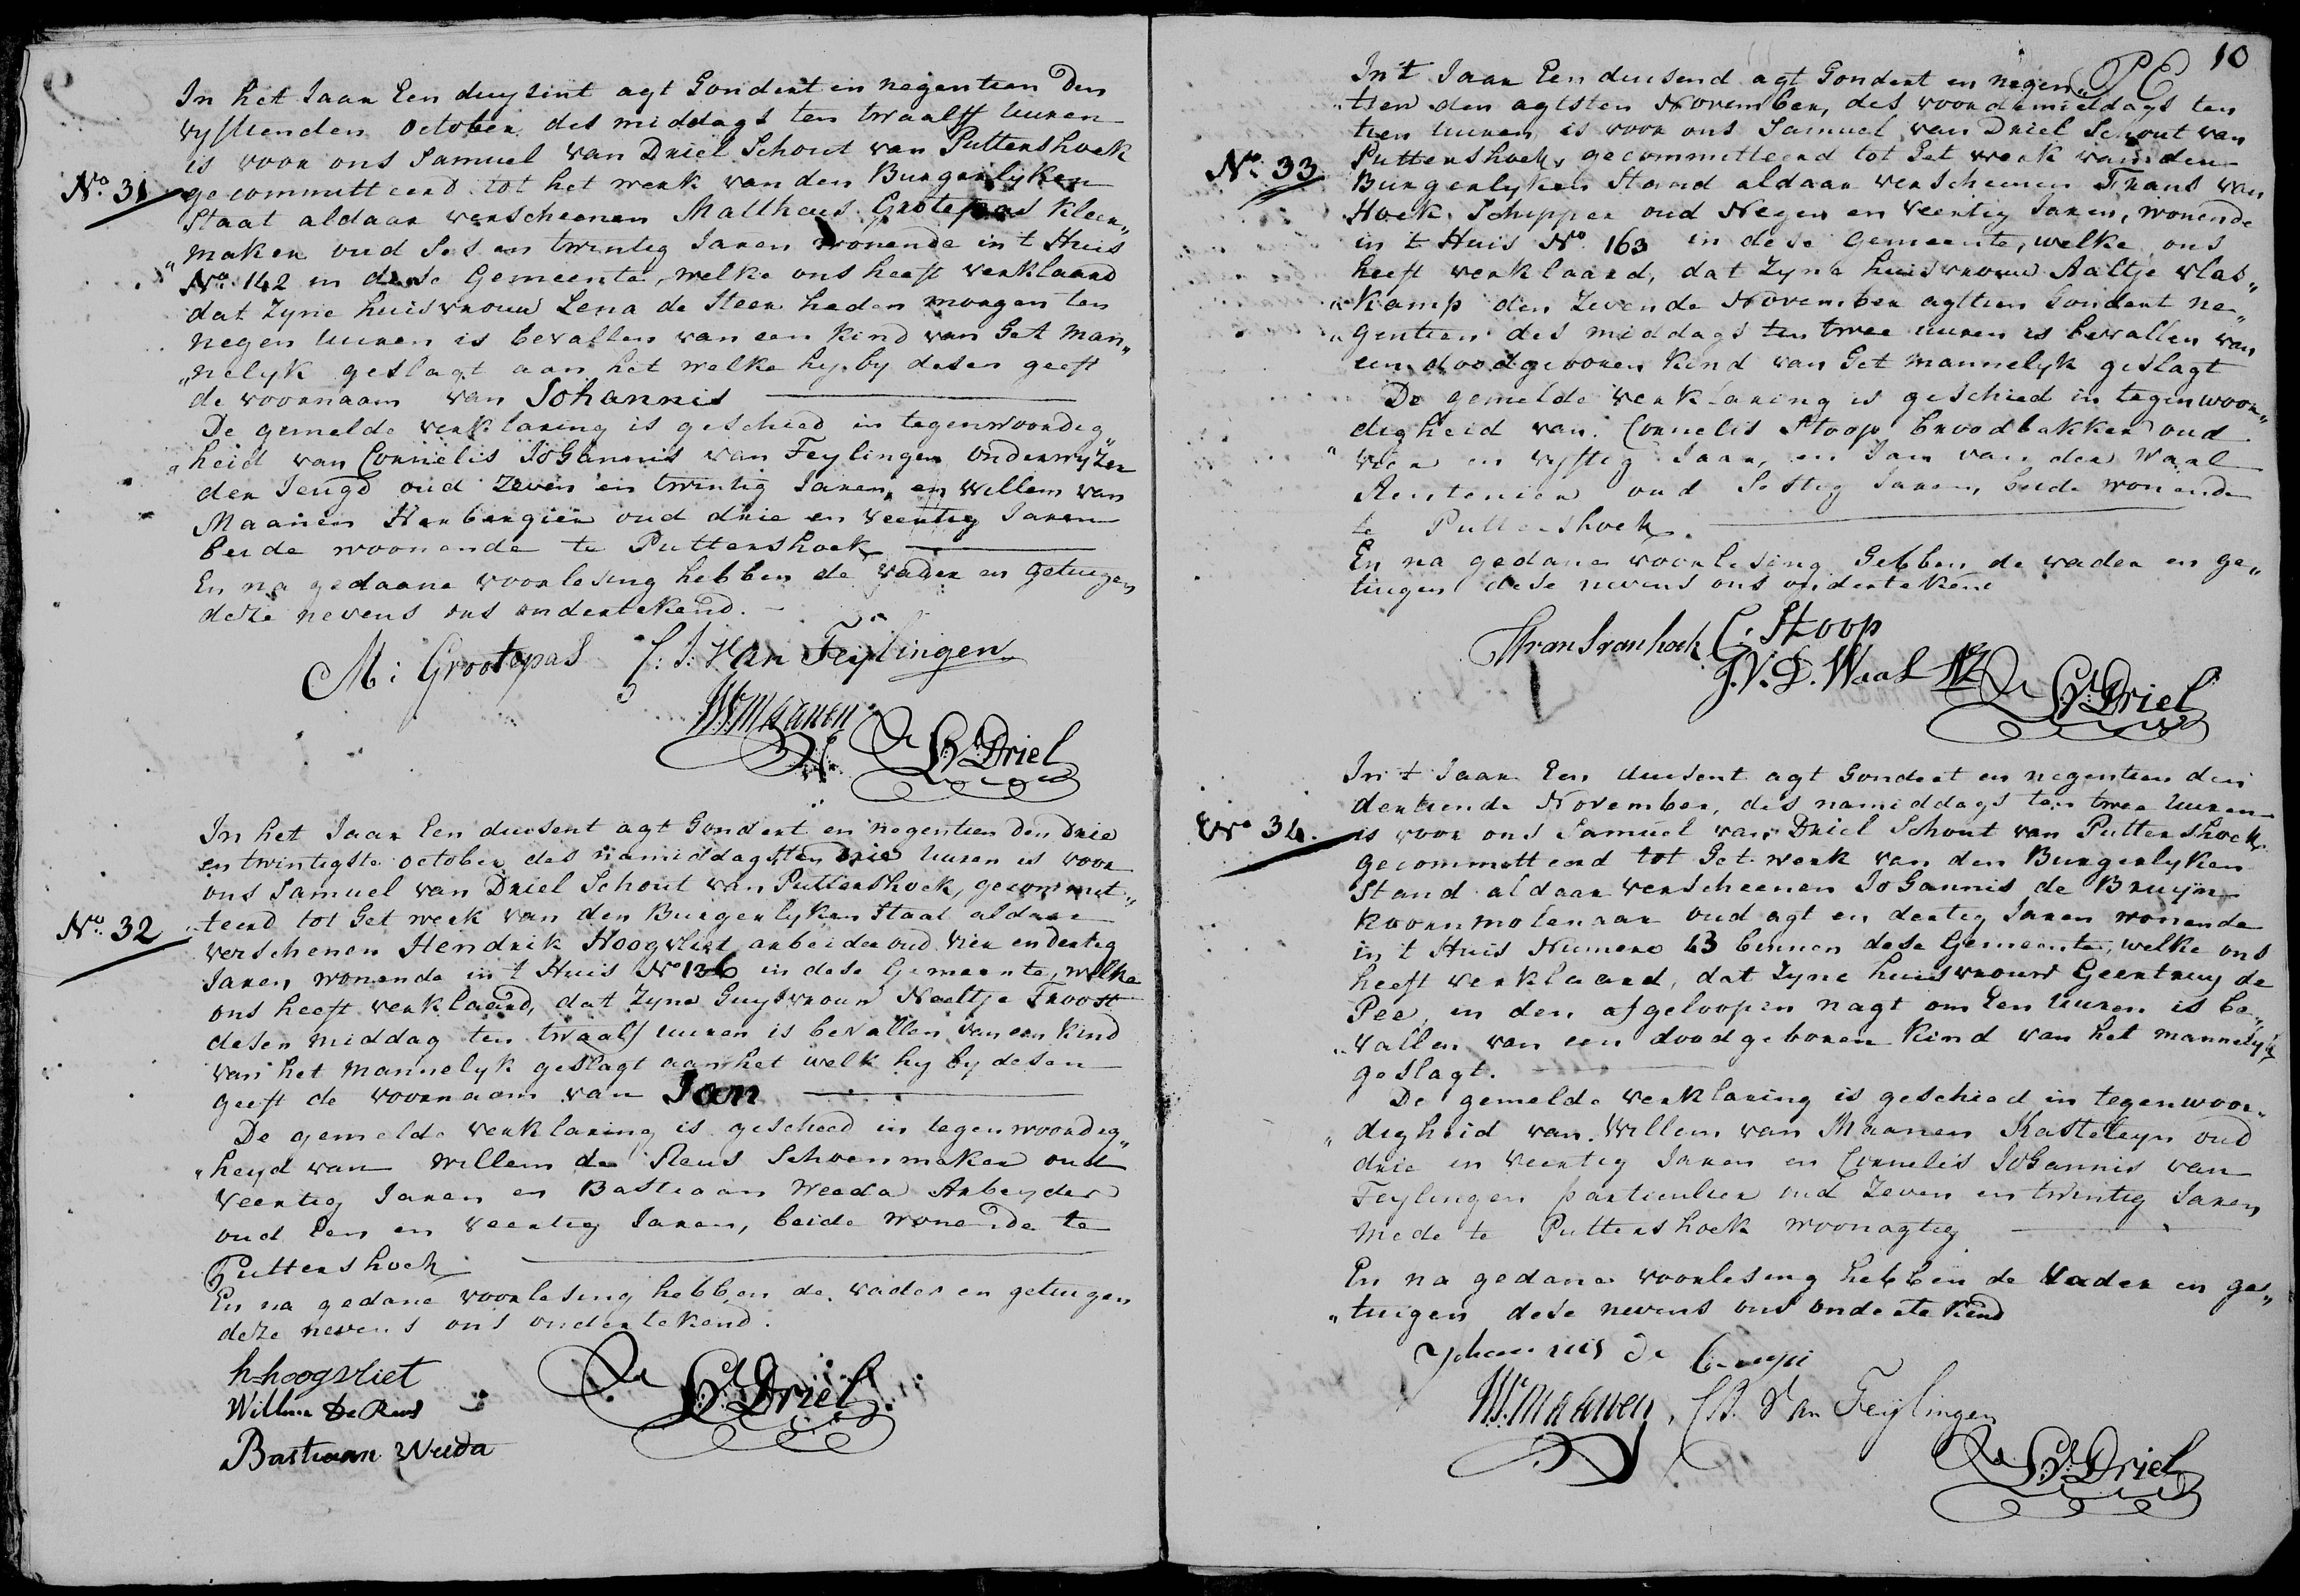 In het Jaar Een duyzint agt Hondert en negentien Den
vyftienden October des middags ten twaalff Uuren
is voor ons Samuel van Driel Schout van Puttershoek
No. 31 gecommitteerd tot het werk van den Burgerlyken
Staat aldaar verscheenen Mattheus Grotepas Kleer„
„maker oud Ses en twintig Jaren wonende in 't Huis
No. 142 in dese Gemeente, welke ons heeft verklaard
dat Zyne huisvrouw Lena de Steer heden morgen ten
negen Uuren is bevallen van een Kind van Het Man„
„nelyk geslagt aan het welke hy by desen geeft
de voornaam van Johannis
De gemelde verklaring is geschied in tegenwoordig
„heid van Cornelis Johannis van Feylingen Onderwyzer
der Jeugd oud Zeven en twintig Jaren, en Willem van
Maanen Herbergier oud drie en Veertig Jaren
beide woonende te Puttershoek
En na gedaane voorlesing hebben de vader en getuigen
deze nevens ons ondertekend.
M: Grootepas C: J: Van Feijlingen
W V Maanen
S V Driel
In het Jaar Een duesent agt Hondert en negentien Den Drie
en twintigste October des namiddags ten Drie Uuren is voor
ons Samuel van Driel Schout van Puttershoek, gecommit„
No. 32 „teerd tot Het werk van den Burgerlyken Staat aldaar
verschenen Hendrik Hoogvliet arbeider oud Vier en dertig
Jaren, wonende in 't Huis No 136 in dese Gemeente, welke
ons heeft verklaard, dat Zyne Huysvrouw Neeltje Troost
desen middag ten twaalf uuren is bevallen van een Kind
van het Mannelyk geslagt aan het welk hy by desen
geeft de voornaam van Jan
De gemelde verklaring is geschied in tegenwoordig„
„heyd van Willem de Reus Schoenmaker oud
Veertig Jaren en Bastiaan Weeda Arbeyder
oud Een en Veertig Jaren, beide wonende te
Puttershoek
En na gedane voorlesing hebben de vader en getuigen
deze nevens ons ondertekend.
h=hoogvliet
Willem De Reus
S V Driel
Bastiaan Weeda
10
In 't Jaar Een duesend agt Hondert en negen„
„tien den agtsten November, des voordemiddags ten
tien Uuren, is voor ons Samuel van Driel Schout van
No. 33 Puttershoek, gecommitteerd tot Het werk van den
Burgerlyken Stand aldaar verscheenen Frans van
Hoek Schipper oud Negen en Veertig Jaren, wonende
in 't Huis No. 163 in dese Gemeente, welke ons
heeft verklaard, dat Zyne huisvrouw Aaltje Vlas„
„kamp den Zevende November agttien Hondert ne„
„gentien des middags ten twee uuren is bevallen van
een doodgeooren Kind van Het mannelyk geslagt
De gemelde verklaring is geschied in tegenwoor„
„digheid van Cornelis Stoop broodbakker oud
Vier en vyftig Jaar, en Jan van der Waal
Rentenier oud Sestig Jaren, beide wonende
te Puttershoek.
En na gedane voorlesing Hebben de vader en ge„
tuigen dese nevens ons ondertekend
Frans van hoek C. Stoop
J. V. D. Waal
S V Driel
In 't Jaar Een duesent agt Hondert en negentien den
dertiende November, des namiddags ten twee Uuren
No 34. is voor ons Samuel van Driel Schout van Puttershoek
gecommitteerd tot Het werk van den Burgerlyken
Stand aldaar verscheenen Johannis de Bruyn
Koornmolenaar oud agt en dertig Jaren wonende
in 't Huis Numero 63 binnen dese Gemeente, welke ons
heeft verklaard, dat Zyne huisvrouw Geertruy de
Pee, in den afgeloopen nagt om Een Uuren is be„
„vallen van een doodgeboren Kind van het mannelyk
geslagt.
De gemelde verklaring is geschied in tegenwoor„
„digheid van Willem van Maanen Kasteleyn oud
drie en Veertig Jaren en Cornelis Johannis van
Feylingen particulier oud Zeven en twintig Jaren,
mede te Puttershoek woonagtig
En na gedane voorlesing hebben de Vader en ge„
„tuigen dese nevens ons ondertekend
Johannis de
W V Maanen, C J. Van Feijlingen
S V Driel